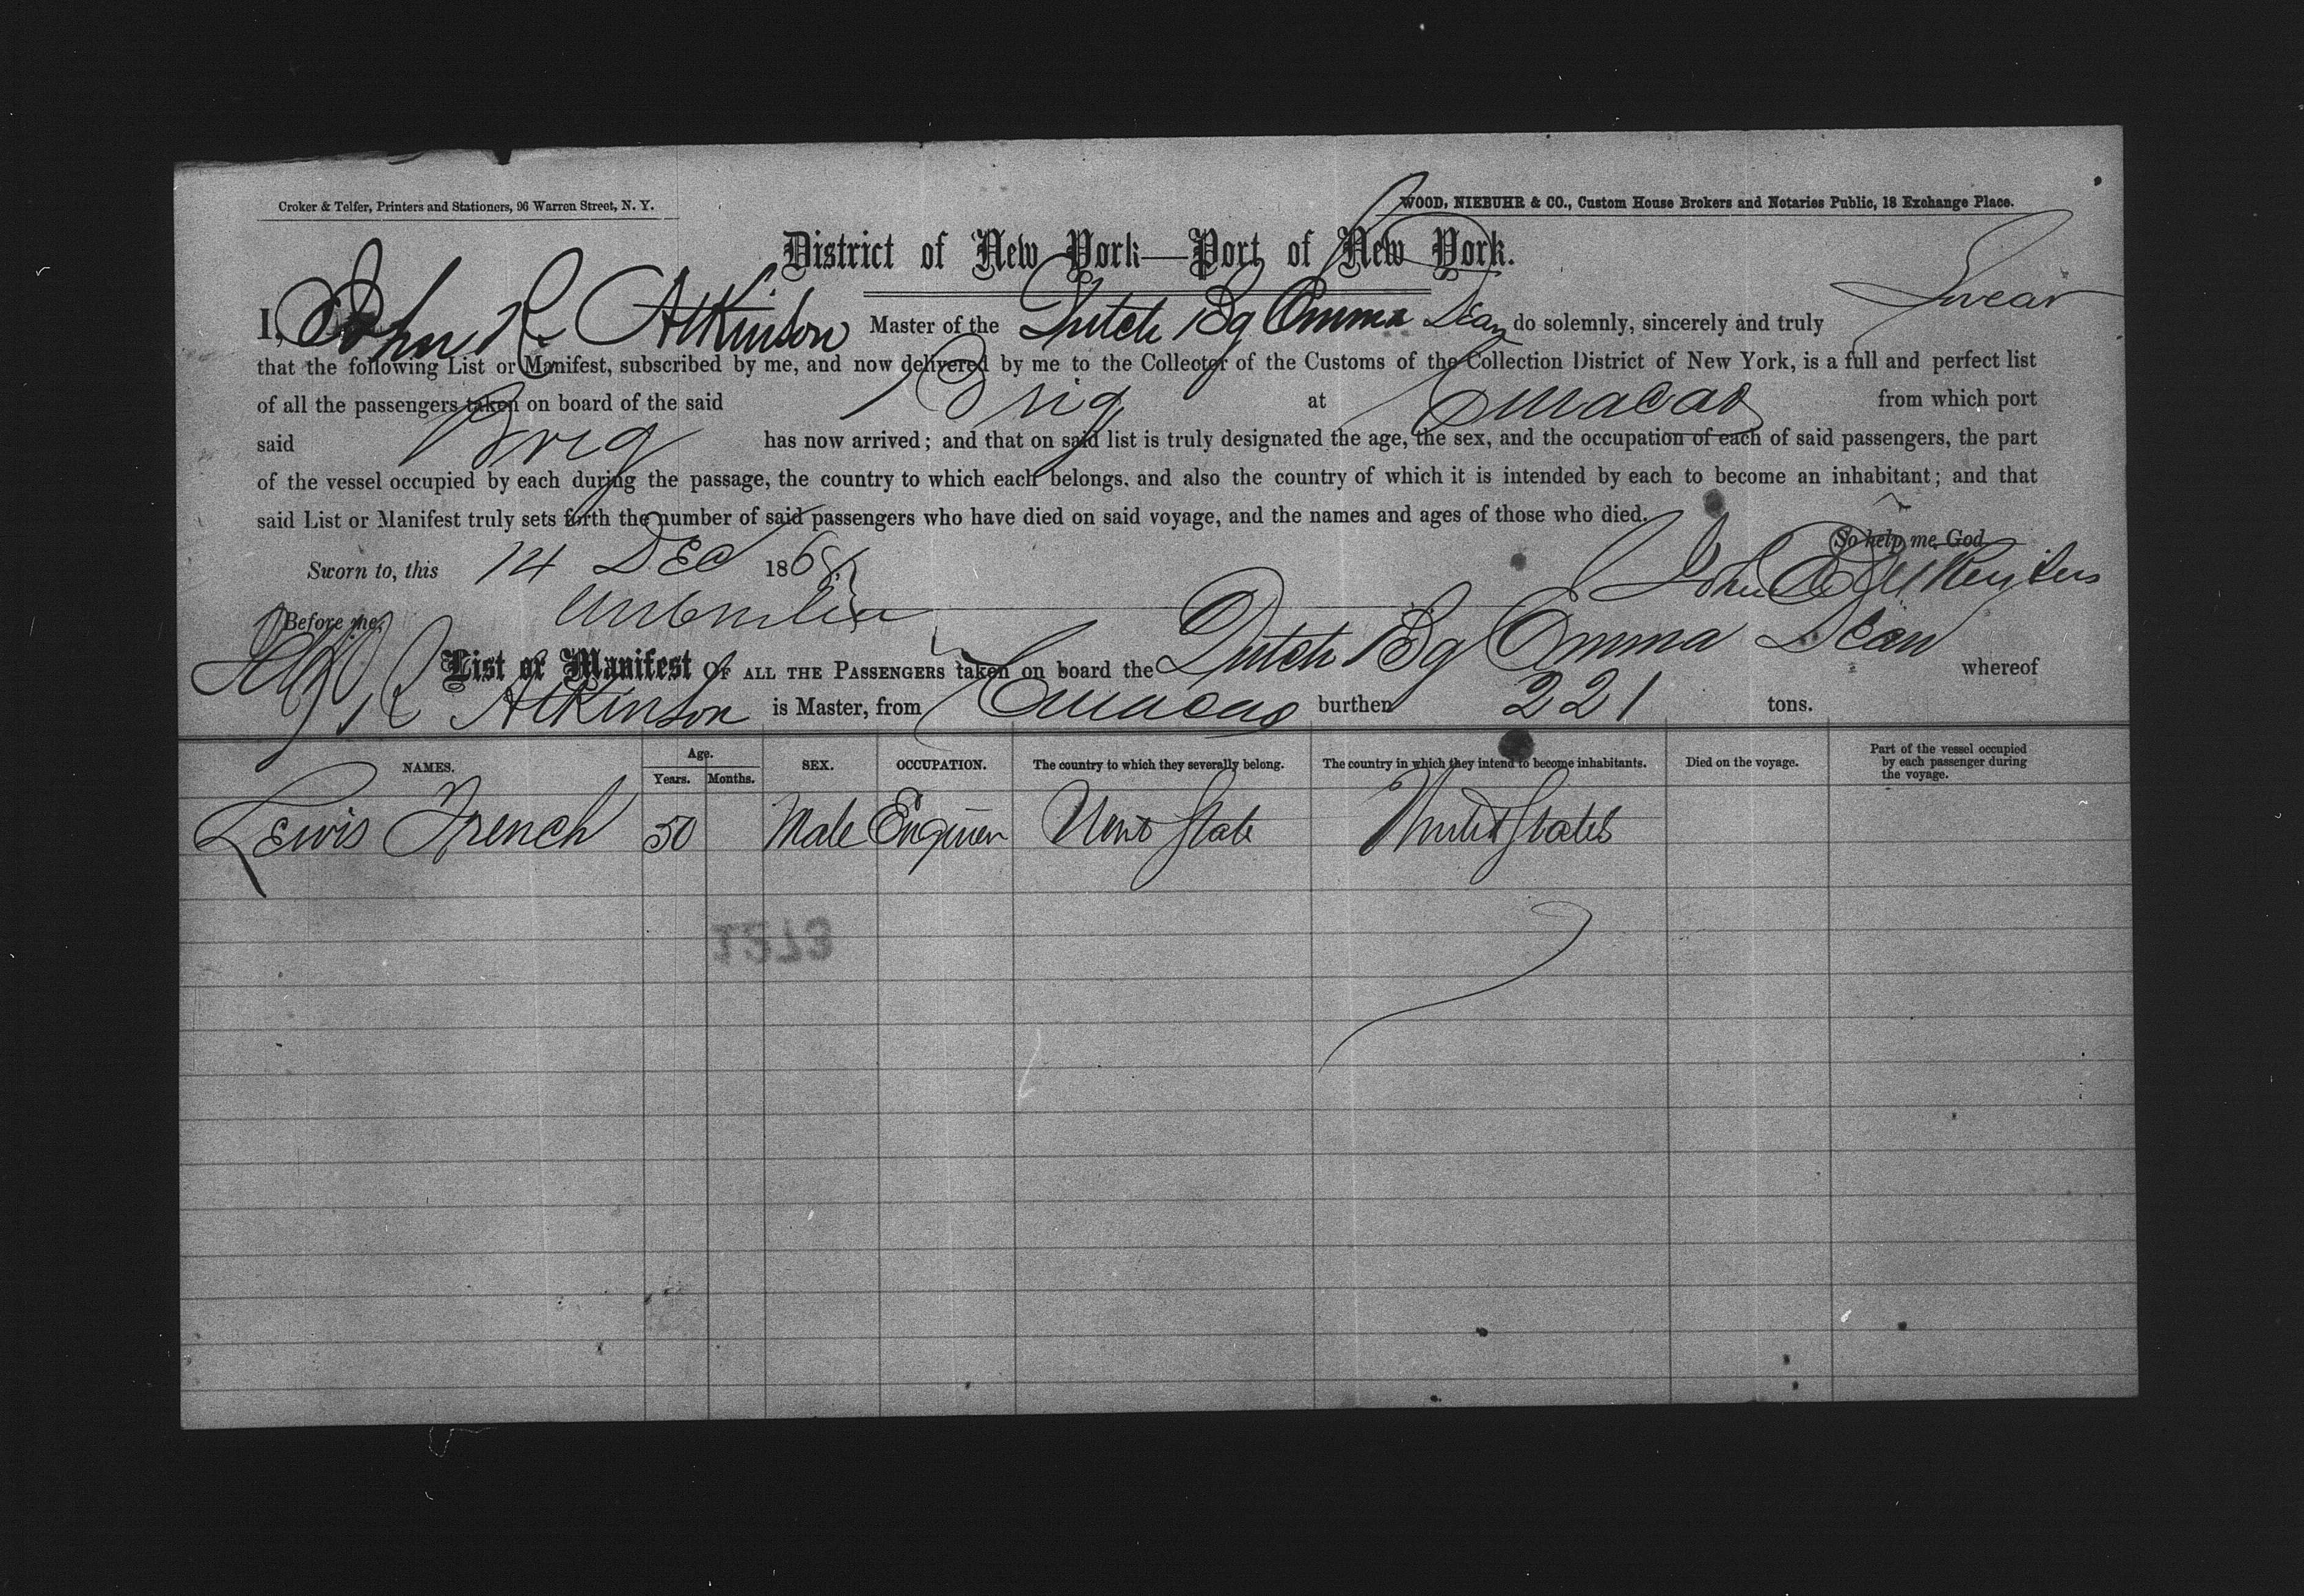 Croker & Telfer, Printers and Stationers, 96 Warren Street, N. Y.
WOOD, NIEBUHR & CO., Custom House Brokers and Notaries Public, 18 Exchange Place.
District of New York—Port of New York.
I, John R. Atkinson Master of the Dutch Bg Emma Dean do solemnly, sincerely and truly Swear
that the following List or Manifest, subscribed by me, and now delivered by me to the Collector of the Customs of the Collection District of New York, is a full and perfect list
of all the passengers taken on board of the said Brig at Curacao from which port
said Brig has now arrived; and that on said list is truly designated the age, the sex, and the occupation of each of said passengers, the part
of the vessel occupied by each during the passage, the country to which each belongs, and also the country of which it is intended by each to become an inhabitant; and that
said List or Manifest truly sets forth the number of said passengers who have died on said voyage, and the names and ages of those who died.
So help me God
Sworn to, this 14 Dec 1868
John R Atkinson
Before me,
List or Manifest OF ALL THE PASSENGERS taken on board the Dutch Bg Emma Dean whereof
R Atkinson is Master, from Curacao burthen 221 tons.
NAMES. Age. Years. Months. SEX. OCCUPATION. The country to which they severally belong. The country in which they intend to become inhabitants. Died on the voyage. Part of the vessel occupied by each passenger during the voyage.
Lewis French 50 Male Engineer United State United States